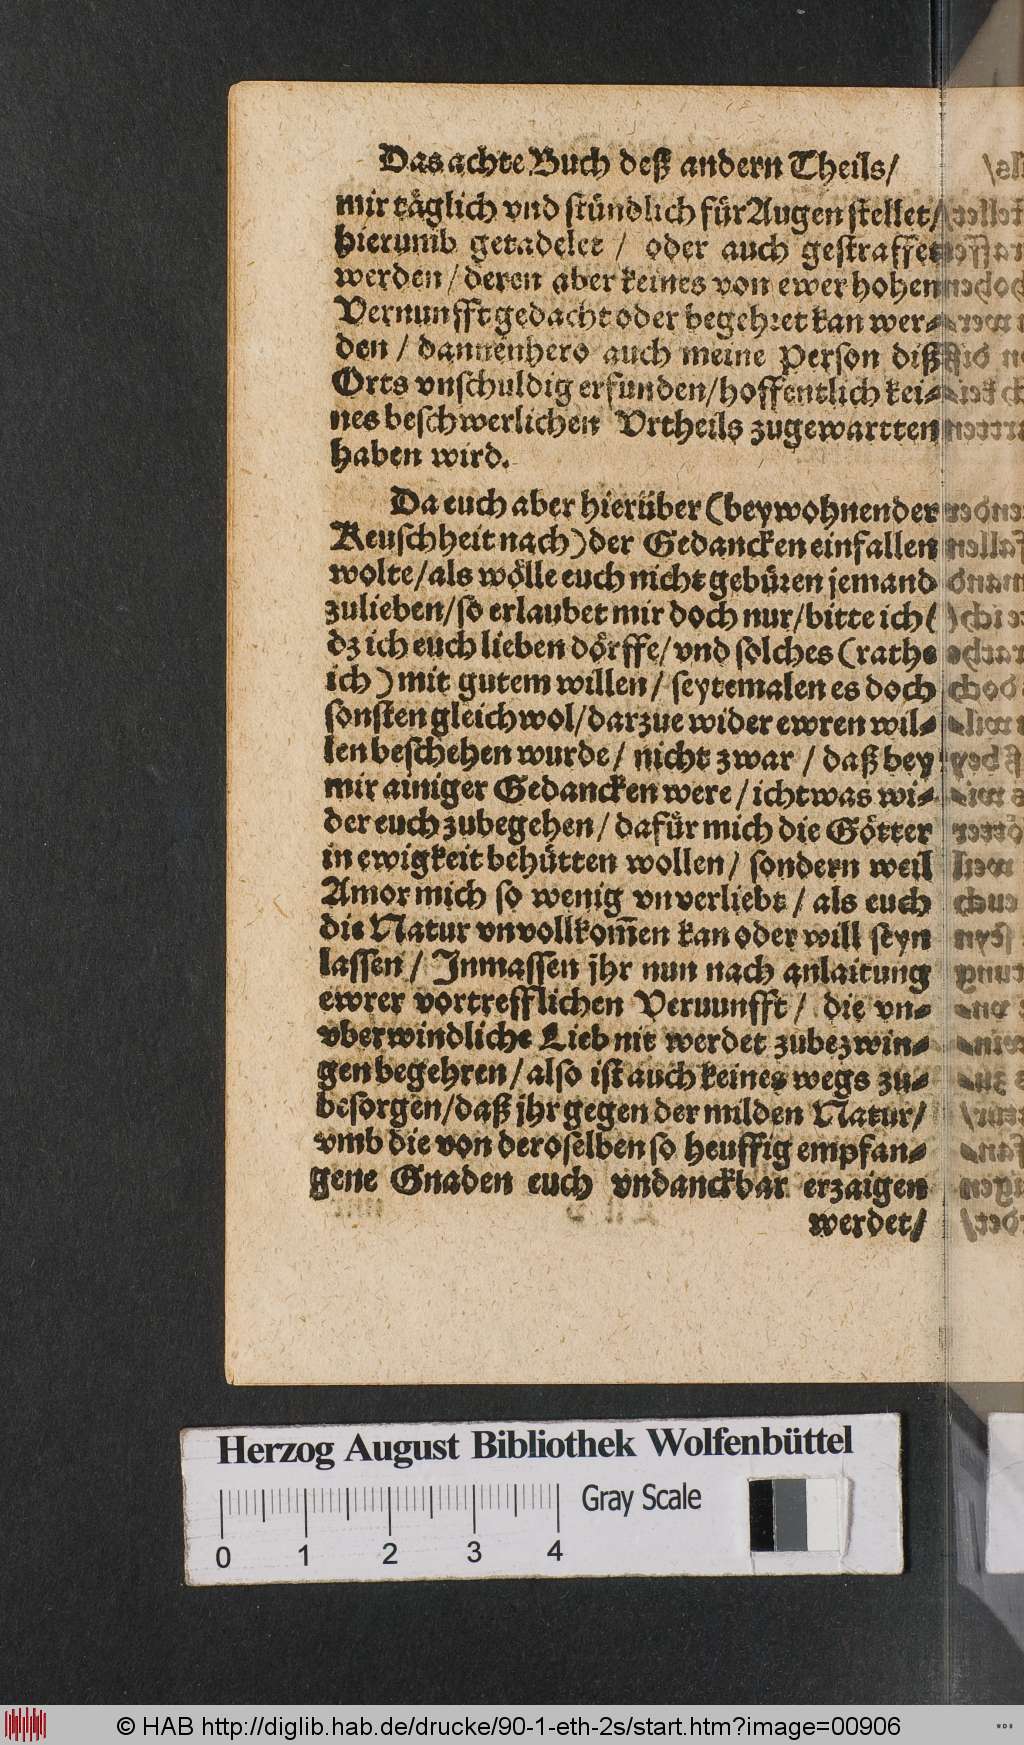 Das achte Buch deß andern Theils/
mir täglich vnd stündlich für Augen stellet/
hierumb getadelet / oder auch gestraffet
werden / deren aber keines von ewer hohen
Vernunfft gedacht oder begehret kan wer-
den / dannenhero auch meine Person diß
Orts vnschuldig erfunden/hoffentlich kei-
nes beschwerlichen Vrtheils zugewartten
haben wird.
Da euch aber hierüber (beywohnender
Keuschheit nach) der Gedancken einfallen
wolte/als wölle euch nicht gebüren jemand
zulieben/so erlaubet mir doch nur/bitte ich/
dz ich euch lieben dörffe/vnd solches (rathe
ich) mit gutem willen/ seytemalen es doch
sonsten gleichwol/darzue wider ewren wil-
len beschehen wurde/ nicht zwar / daß bey
mir ainiger Gedancken were/ichtwas wi-
der euch zubegehen/dafür mich die Götter
in ewigkeit behütten wollen/ sondern weil
Amor mich so wenig vnverliebt / als euch
die Natur vnvollkom̃en kan oder will seyn
lassen / Inmassen jhr nun nach anlaitung
ewrer vortrefflichen Veruunfft / die vn-
vberwindliche Lieb nit werdet zubezwin-
gen begehren/also ist auch keines wegs zu-
besorgen/daß jhr gegen der milden Natur/
vmb die von deroselben so heuffig empfan-
gene Gnaden euch vndanckbar erzaigen
werdet/
Herzog August Bibliothek Wolfenbüttel
Gray Scale
0 1 2 3 4
© HAB http://diglib.hab.de/drucke/90-1-eth-2s/start.htm?image=00906